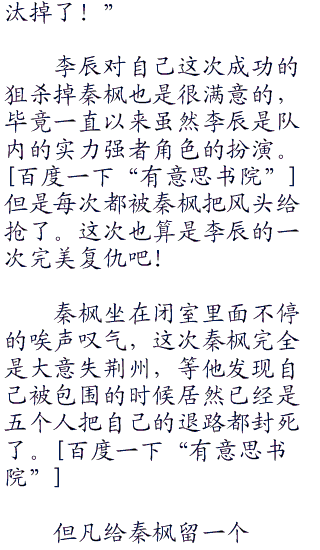 汰掉了！”
李辰对自己这次成功的
狙杀掉秦枫也是很满意的，
毕竟一直以来虽然李辰是队
内的实力强者角色的扮演。
[百度一下“有意思书院”]
但是每次都被秦枫把风头给
抢了。这次也算是李辰的一
次完美复仇吧！
秦枫坐在闭室里面不停
的唉声叹气，这次秦枫完全
是大意失荆州，等他发现自
己被包围的时候居然已经是
五个人把自己的退路都封死
了。[百度一下“有意思书
院”]
但凡给秦枫留一个